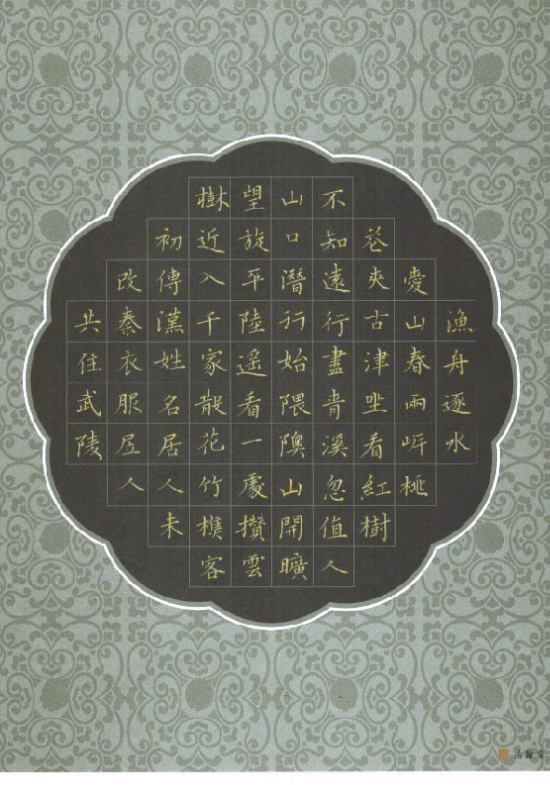 漁舟逐水
愛山春兩岸桃
花夾古津坐看紅樹
不知遠行盡青溪忽值人
山口潛行始隈隩山開曠
望旋平陸遥看一處攢雲
樹近入千家散花竹樵客
初傳漢姓名居人未
改秦衣服居人
共住武陵